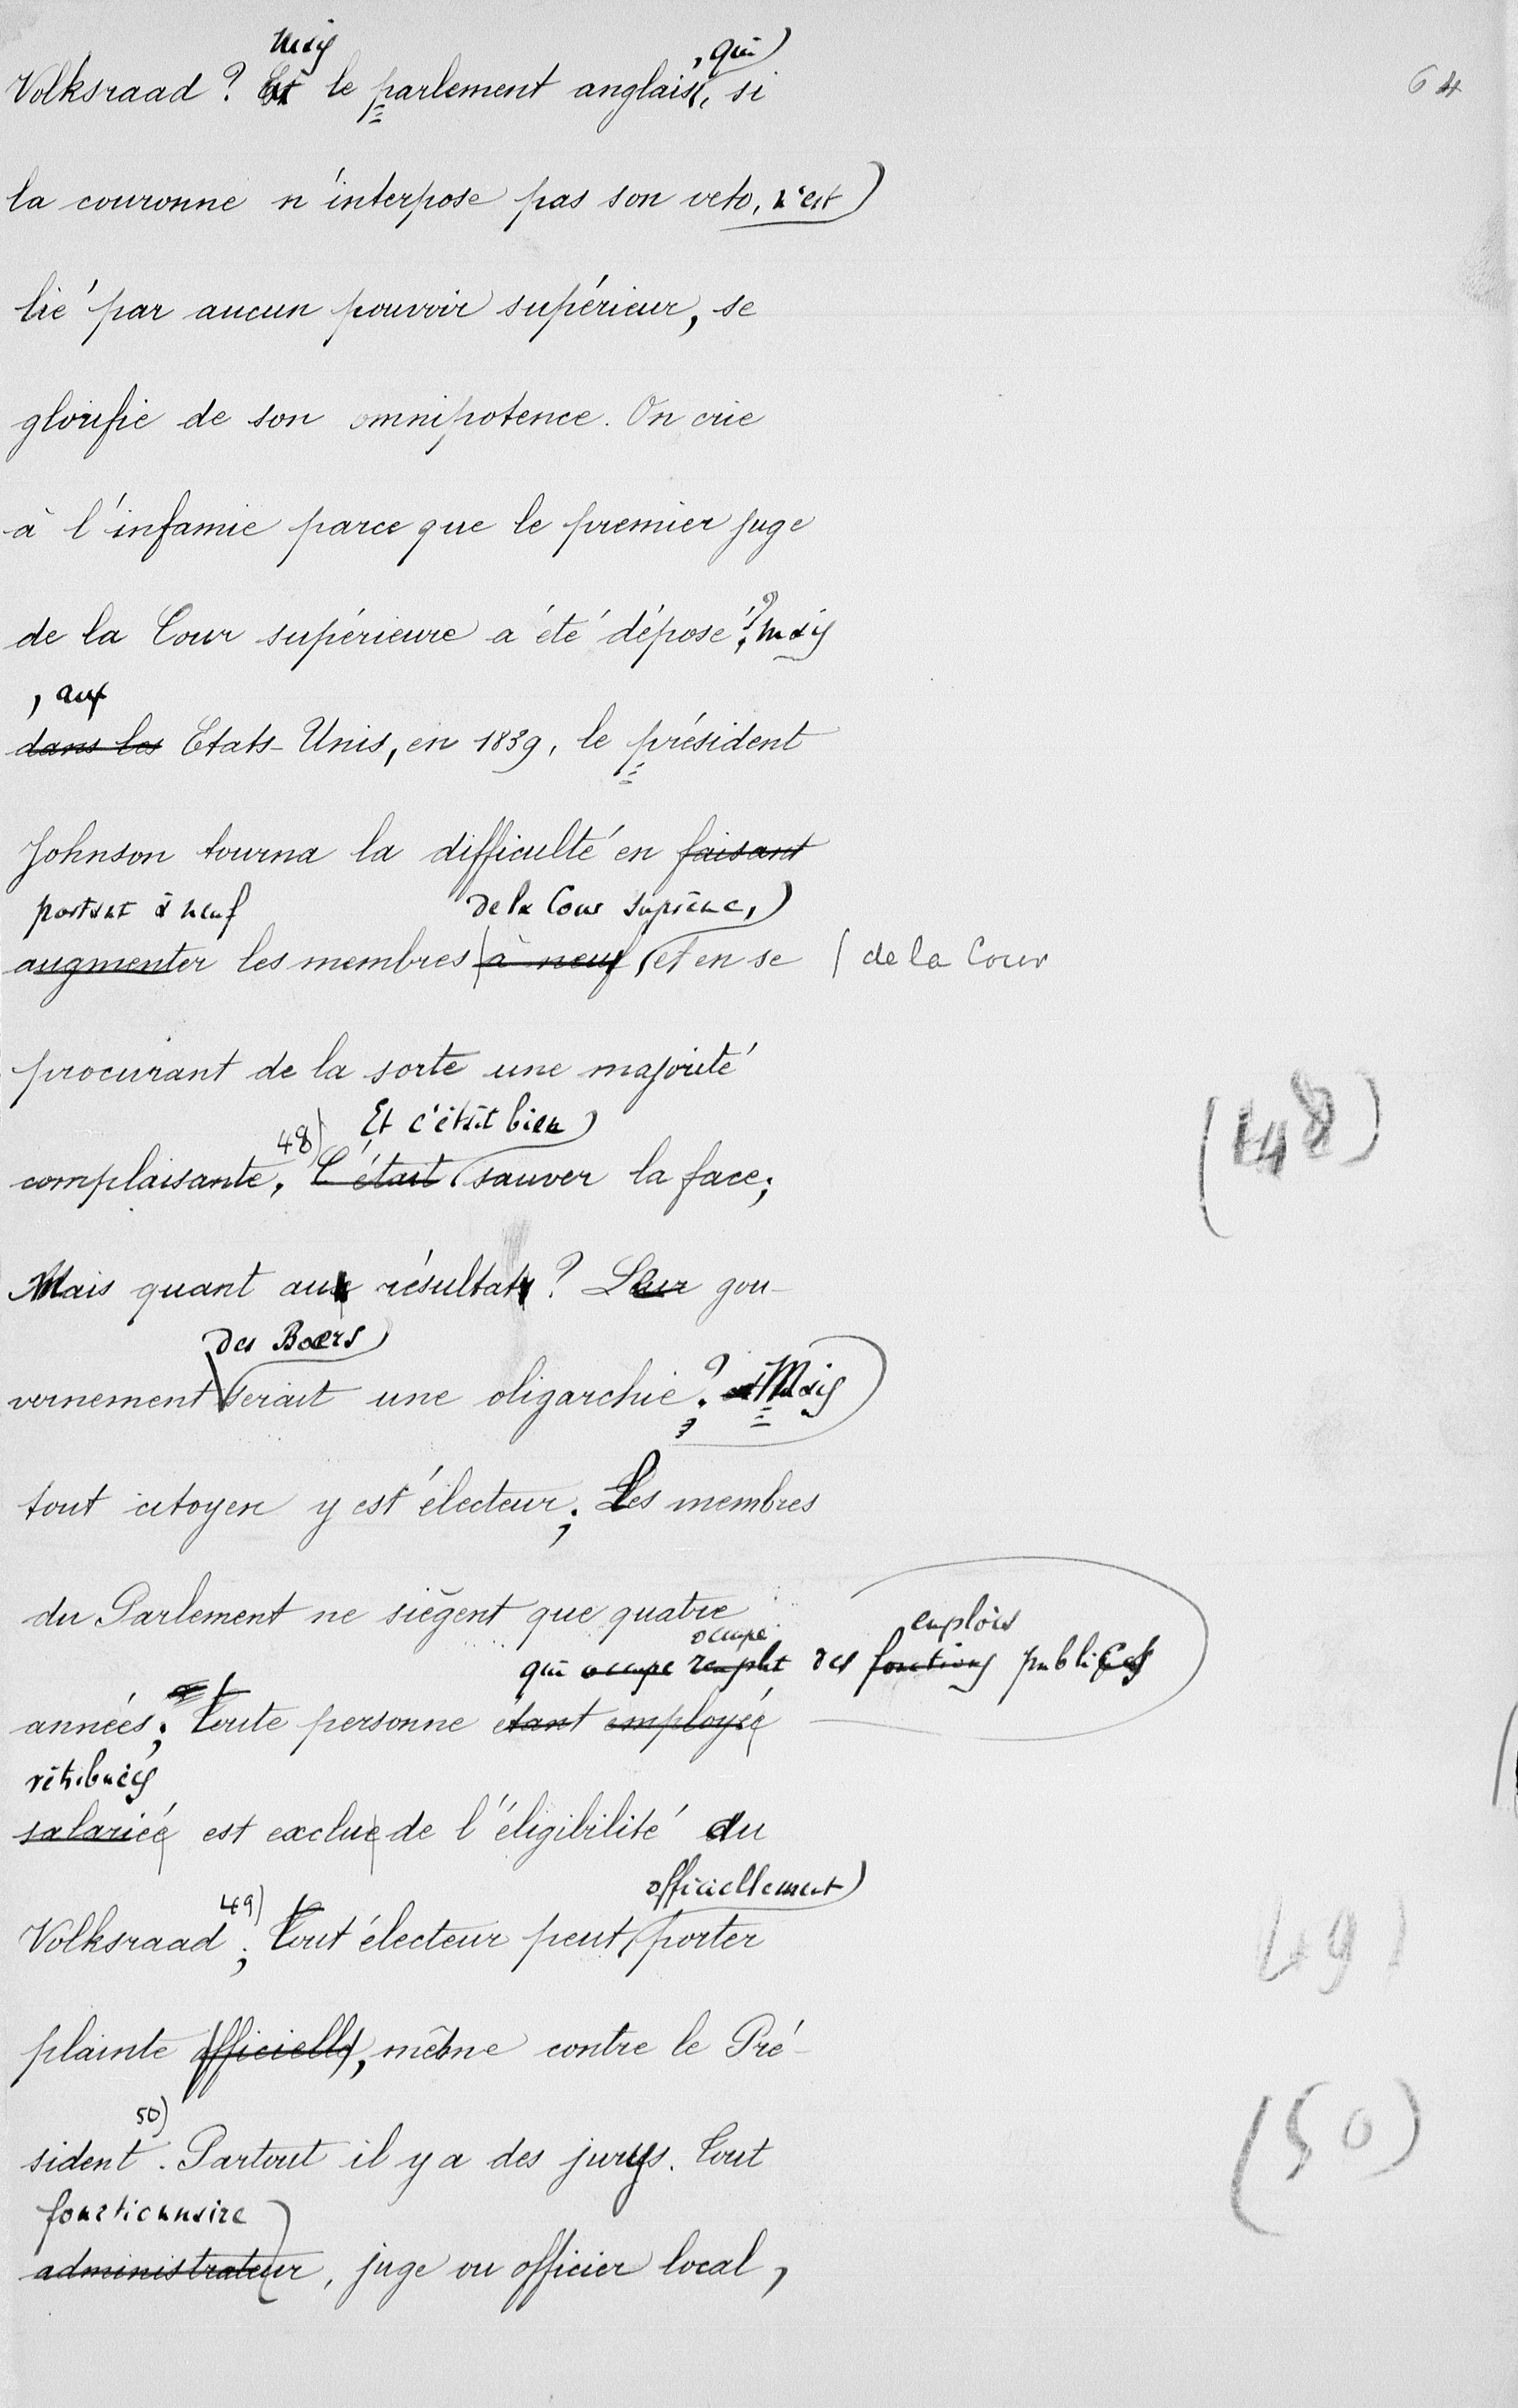 64
Mais , qui
Volksraad ? Et le parlement anglais, si
la couronne n'interpose pas son veto, n'est
lié par aucun pouvoir supérieur, se
glorifie de son omnipotence. On crie
à l'infamie parce que le premier juge
de la Cour supérieure a été déposé ? Mais
, aux
dans les Etats-Unis, en 1839, le président
Johnson tourna la difficulté en faisant
portant à neuf de la Cour suprême,
augmenter les membres à neuf, et en se / de la Cour
procurant de la sorte une majorité
48) Et c'était bien (48)
complaisante. C'était sauver la face;
Mais quant aux résultats ? Leur gou-
des Boers
vernement serait une oligarchie ? Mais
tout citoyen y est électeur ; Les membres
du Parlement ne siègent que quatre
occupe emplois
qui occupe remplit des fonctions publiques
années ; Toute personne étant employée
rétribués
salariée est exclue de l'éligibilité du
49) officiellement
Volksraad ; Tout électeur peut porter 49)
plainte officielle, même contre le Pré-
50) (50)
sident. Partout il y a des jurys. Tout
fonctionnaire
administrateur, juge ou officier local,